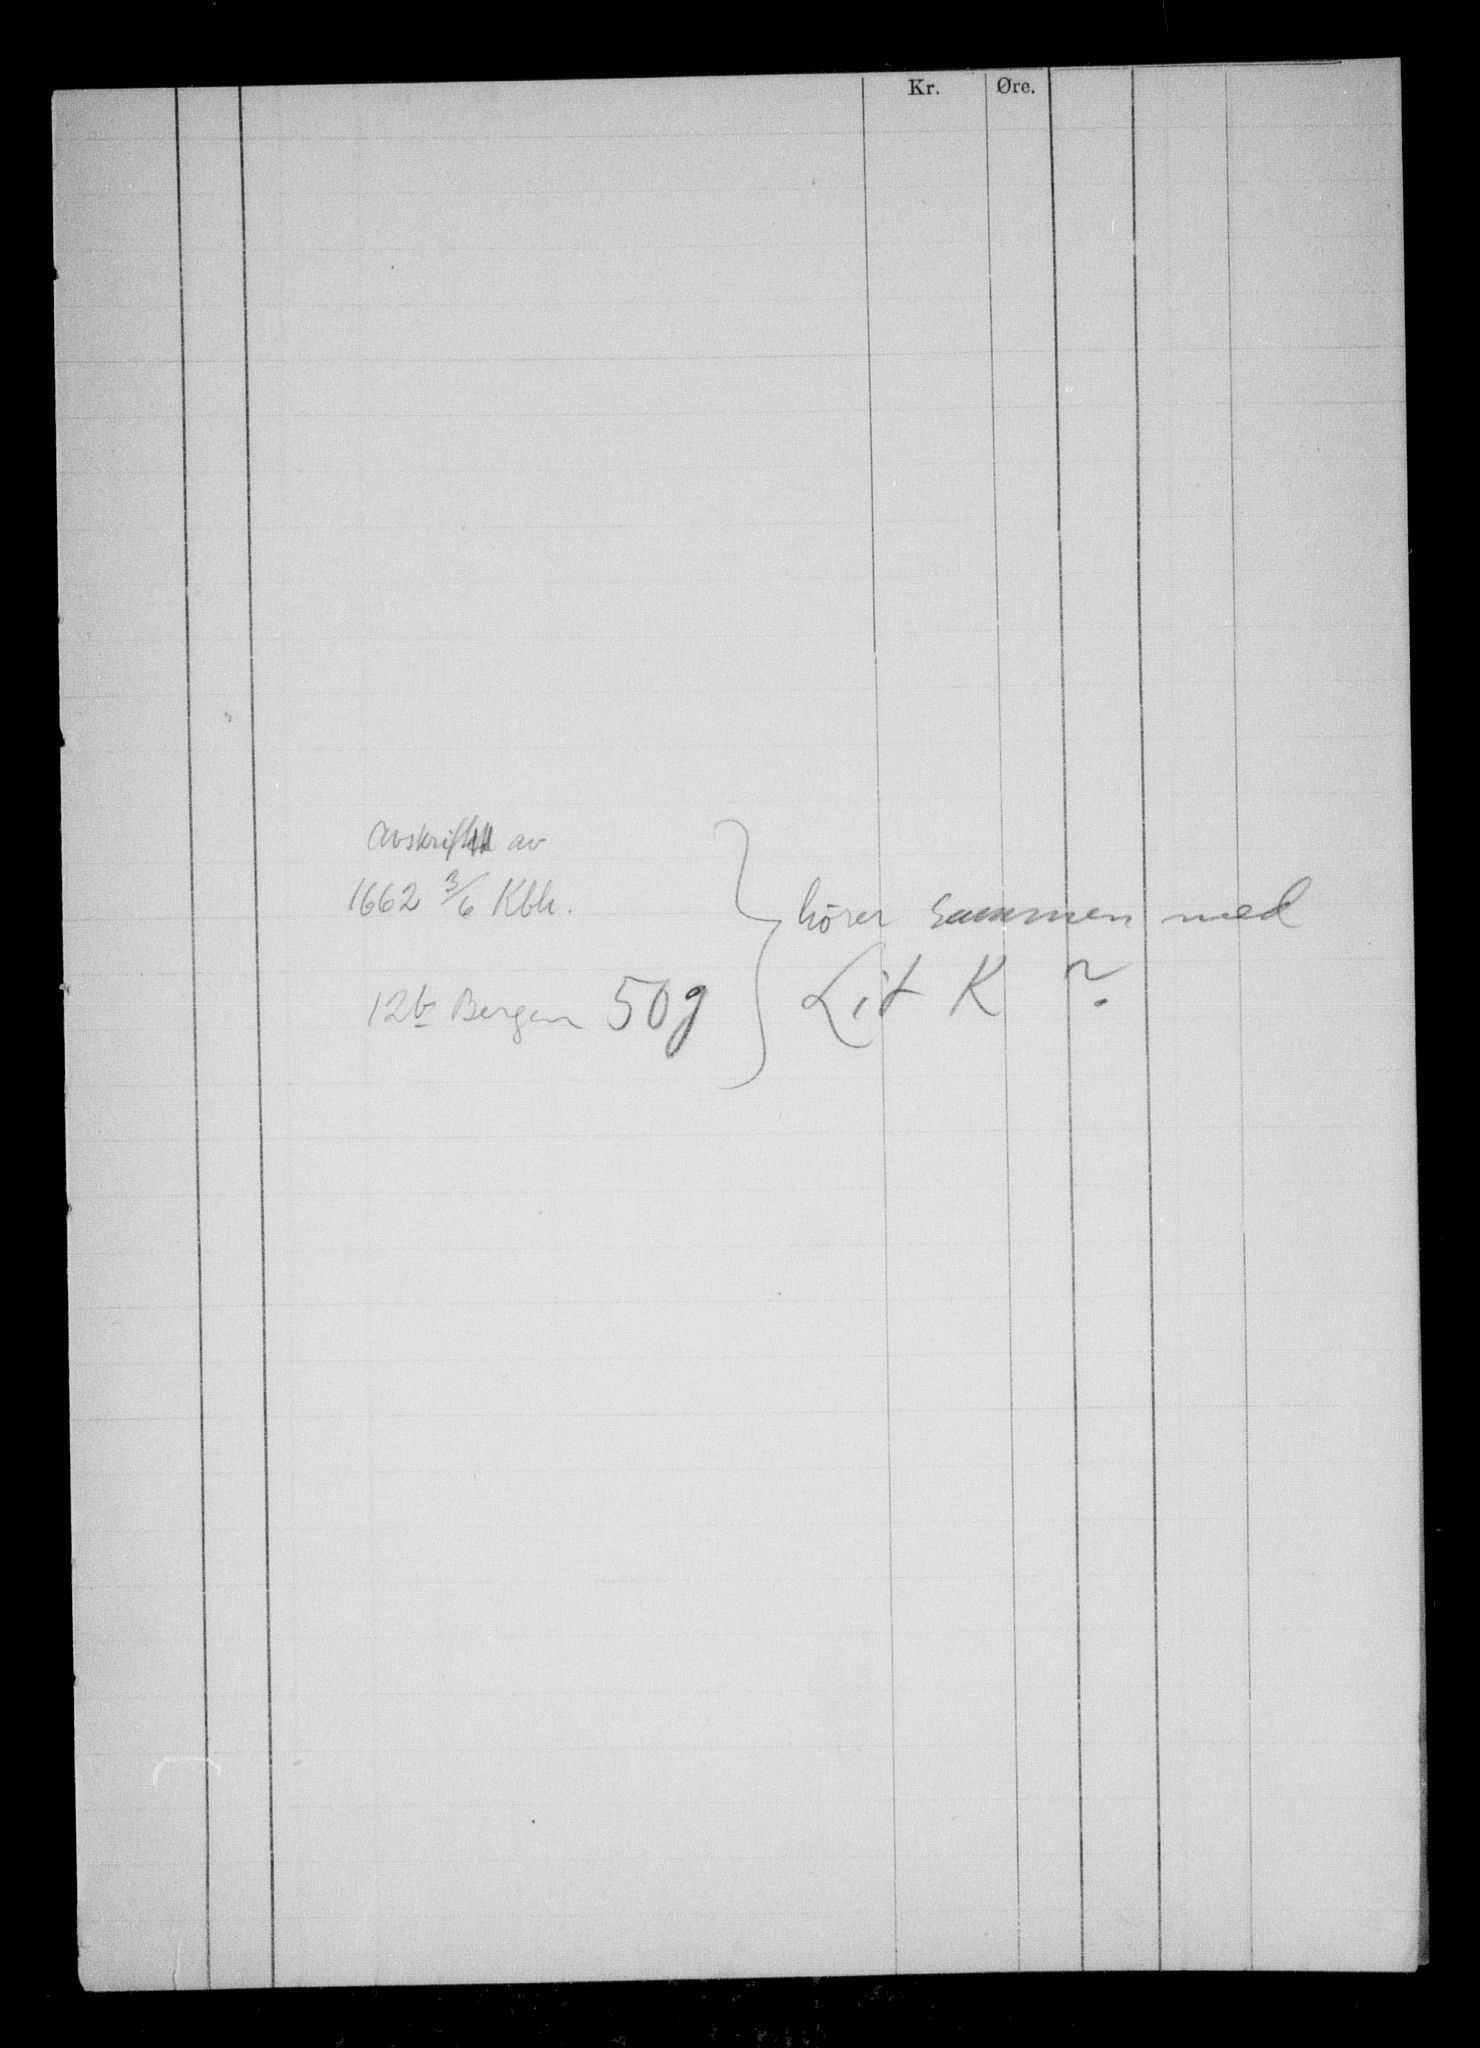 Kr. Øre.
Avskrift av
1662 3/6 Kbh.
12b Bergen 50g
hörer sammen med
Lit K ?